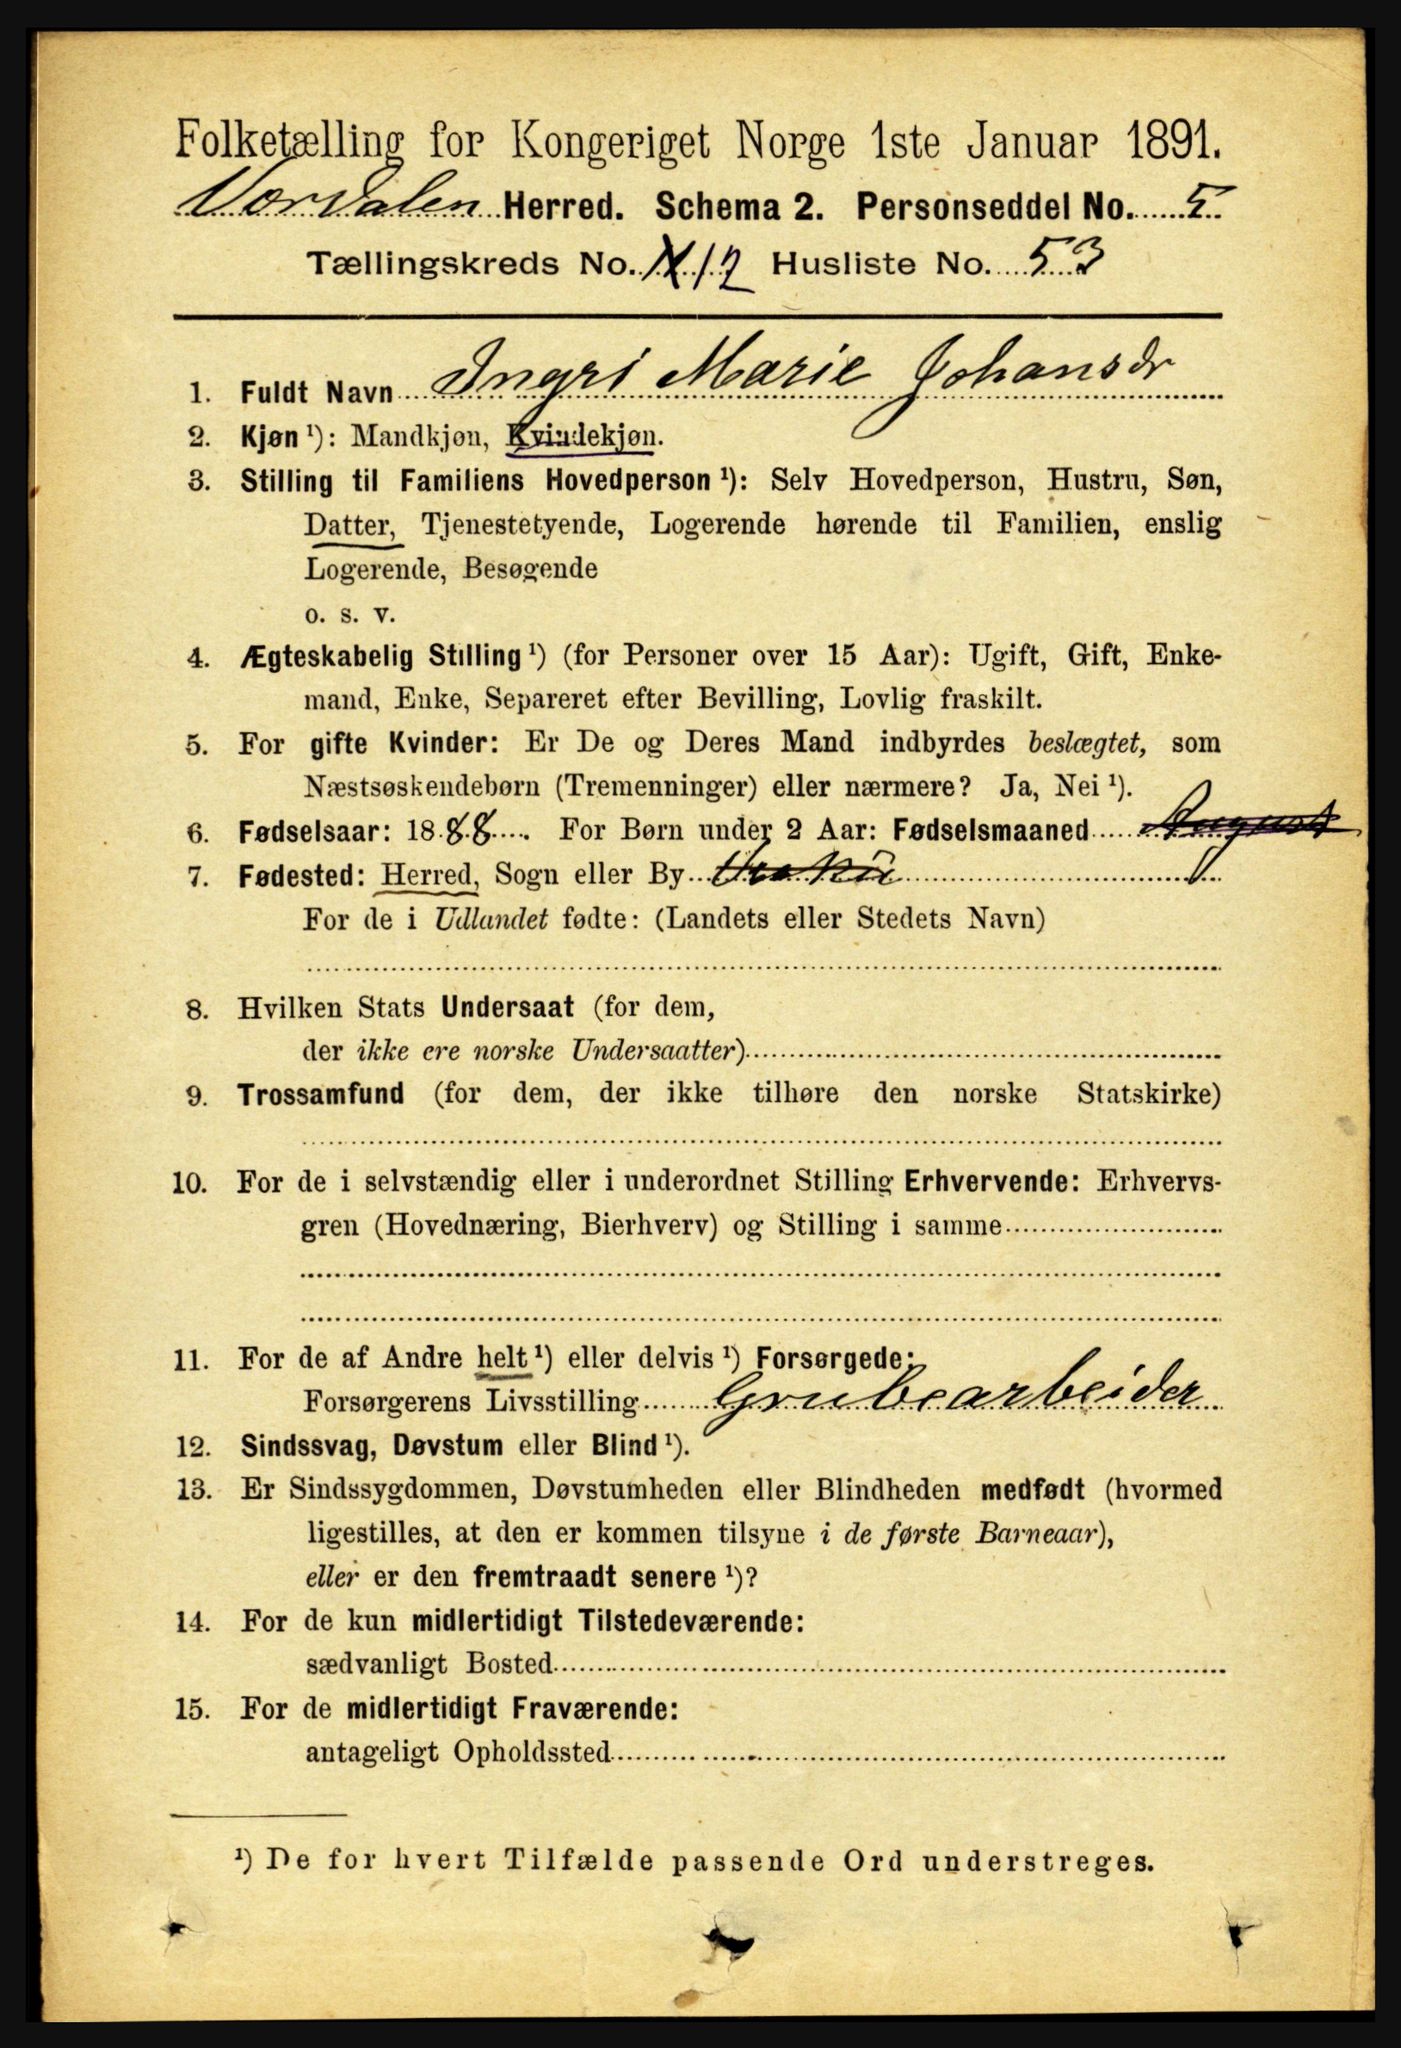 Folketælling for Kongeriget Norge 1ste Januar 1891.
Værdalen Herred. Schema 2. Personseddel No. 5
Tællingskreds No. 12 Husliste No. 53
1. Fuldt Navn Ingri Marie Johansdr
2. Kjøn ¹): Mandkjøn, Kvindekjøn.
3. Stilling til Familiens Hovedperson ¹): Selv Hovedperson, Hustru, Søn,
Datter, Tjenestetyende, Logerende hørende til Familien, enslig
Logerende, Besøgende
o. s. v.
4. Ægteskabelig Stilling ¹) (for Personer over 15 Aar): Ugift, Gift, Enke-
mand, Enke, Separeret efter Bevilling, Lovlig fraskilt.
5. For gifte Kvinder: Er De og Deres Mand indbyrdes beslægtet, som
Næstsøskendebørn (Tremenninger) eller nærmere? Ja, Nei ¹).
6. Fødselsaar: 1888. For Børn under 2 Aar: Fødselsmaaned August
7. Fødested: Herred, Sogn eller By
For de i Udlandet fødte: (Landets eller Stedets Navn)
8. Hvilken Stats Undersaat (for dem,
der ikke ere norske Undersaatter)
9. Trossamfund (for dem, der ikke tilhøre den norske Statskirke)
10. For de i selvstændig eller i underordnet Stilling Erhvervende: Erhvervs-
gren (Hovednæring, Bierhverv) og Stilling i samme
11. For de af Andre helt ¹) eller delvis ¹) Forsørgede:
Forsørgerens Livsstilling Grubearbeider
12. Sindssvag, Døvstum eller Blind ¹).
13. Er Sindssygdommen, Døvstumheden eller Blindheden medfødt (hvormed
ligestilles, at den er kommen tilsyne i de første Barneaar),
eller er den fremtraadt senere ¹)?
14. For de kun midlertidigt Tilstedeværende:
sædvanligt Bosted
15. For de midlertidigt Fraværende:
antageligt Opholdssted
¹) De for hvert Tilfælde passende Ord understreges.